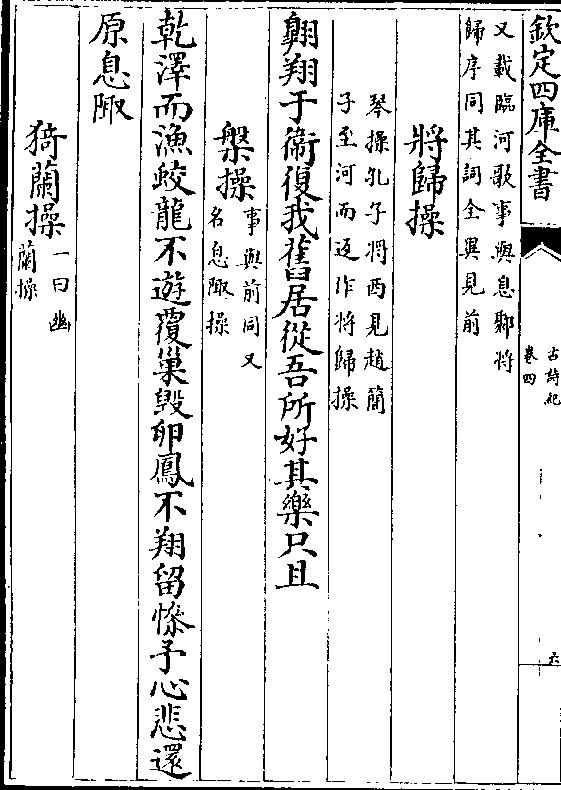 欽定四庫全書
古詩紀
卷四
六
又載臨河歌事與息鄹將
歸序同其詞全異見前
將歸操
琴操孔子將西見趙簡
子至河而返作將歸操
翺翔于衞復我舊居從吾所好其樂只且
槃操
事與前同又
名息陬操
乾澤而漁蛟龍不遊覆巢毀卵鳳不翔留慘予心悲還
原息陬
猗蘭操
一曰幽
蘭操